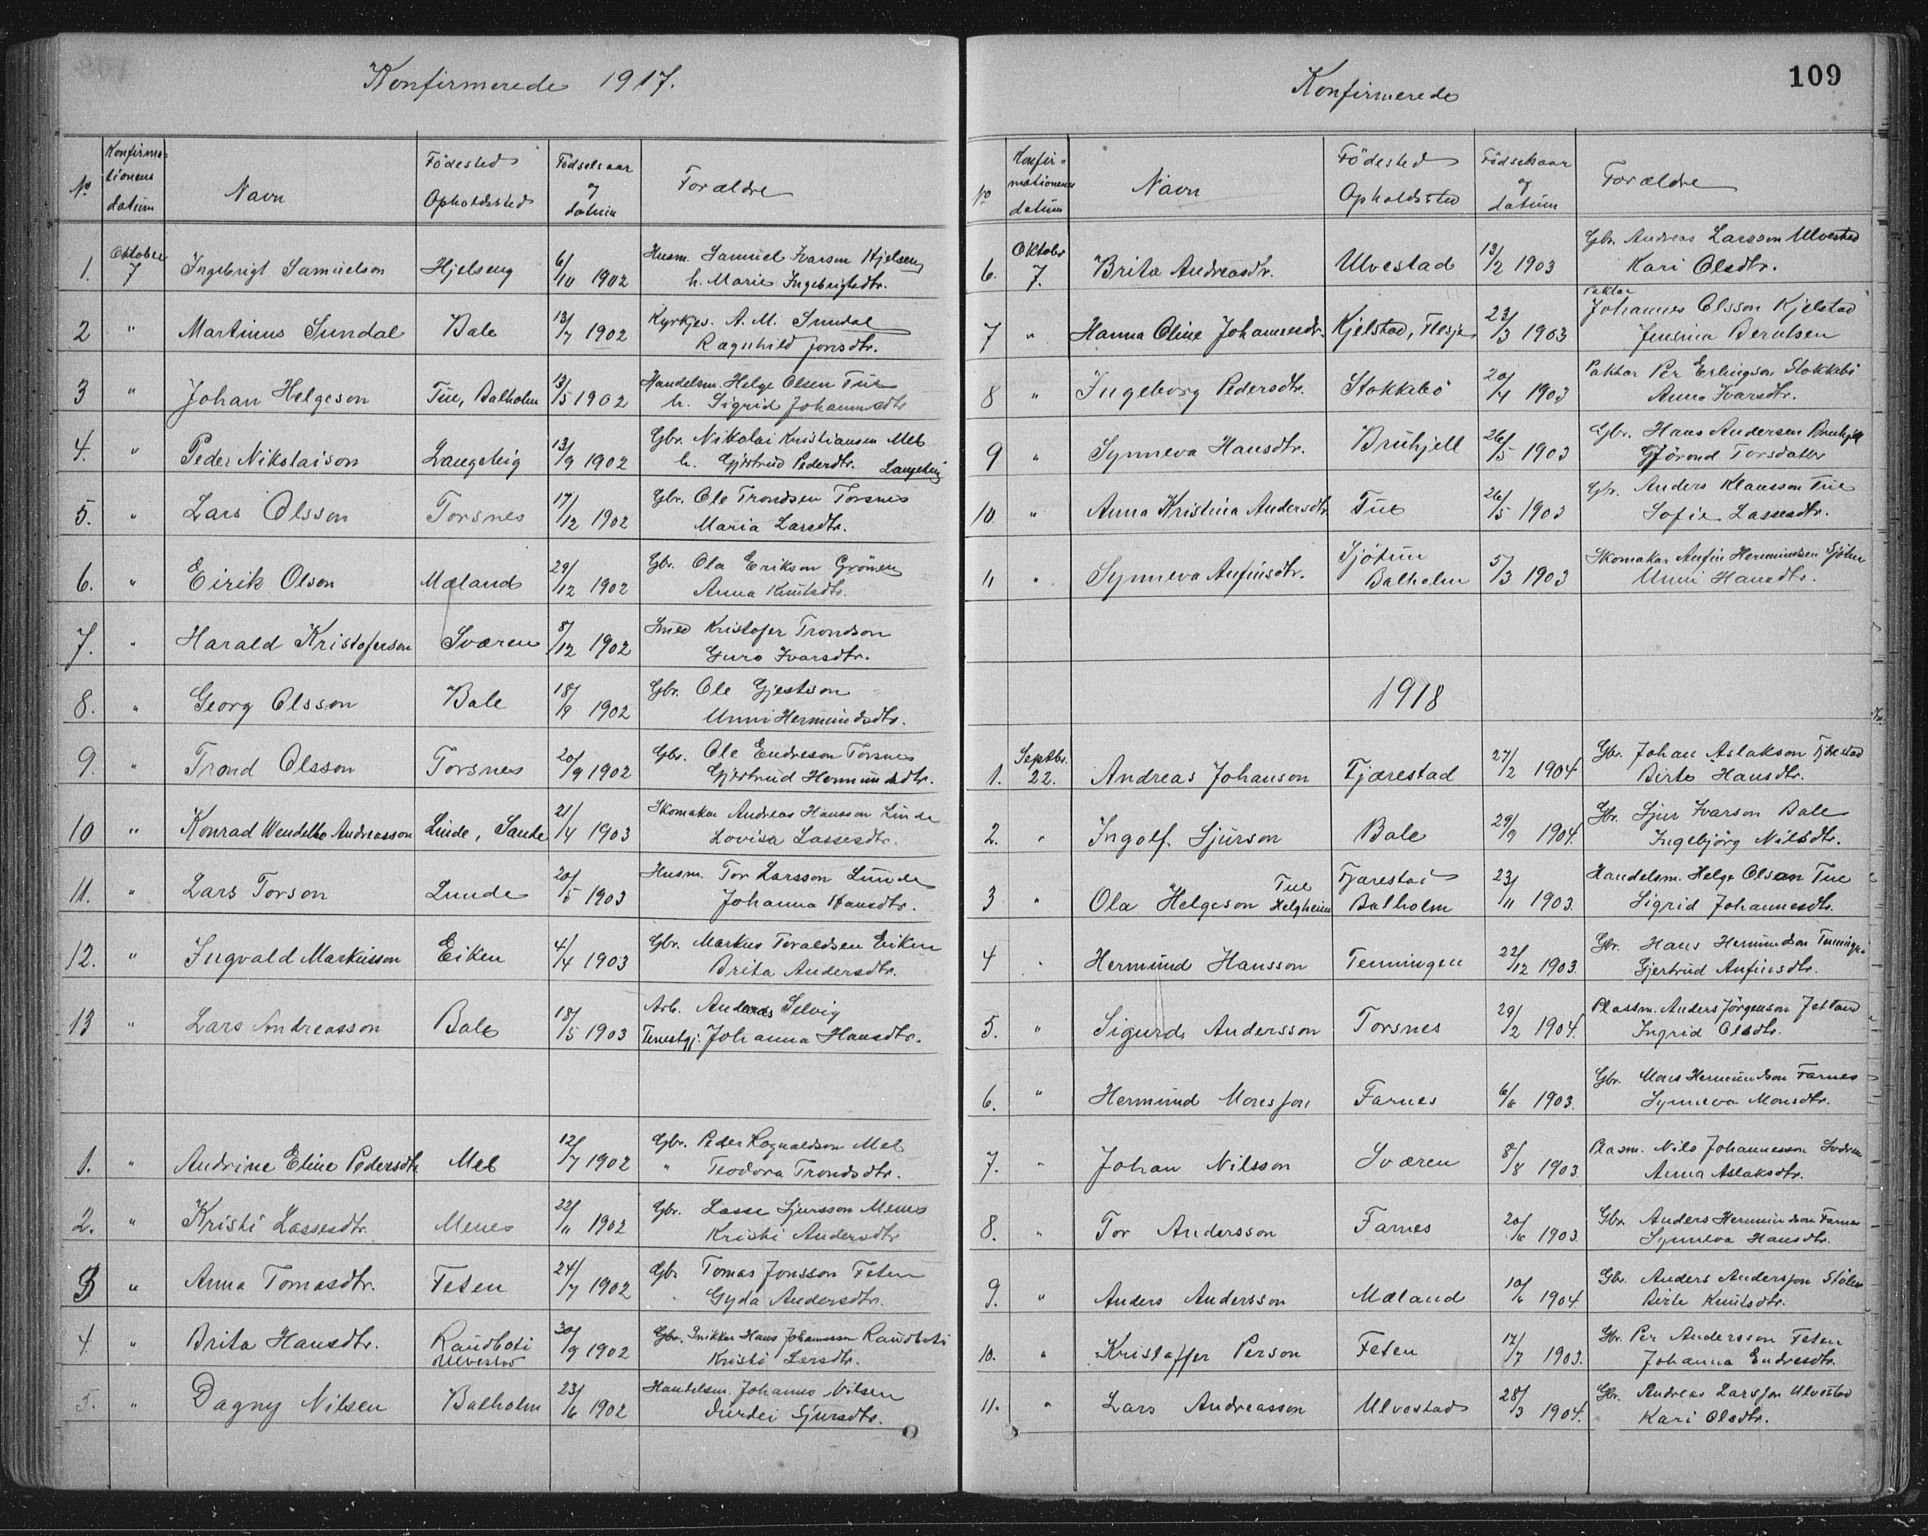 Konfirmerede 1917.
No Konfirma-tionens datum Navn Fødested Opholdssted Fødselsaar og datum Forældre
1. Oktober 7 Ingebrigt Samuelson Hjelseng 6/10 1902 Husm. Samuel Ivarson Hjelseng
h. Marie Ingebrigtsdtr.
2 " Martinus Sundal Bale 13/7 1902 Kyrkjes. A. M. Sundal
Ragnhild Jonsdtr.
3 " Johan Helgeson Tue, Balholm 13/5 1902 Handelsm. Helge Olsen Tue
h. Sigrid Johannesdtr
4. " Peder Nikolaison Langeteig 13/9 1902 Gbr. Nikolai Kristiansen Mel
h. Gjertrud Pedersdtr. Langeteig
5. " Lars Olsson Torsnes 17/12 1902 Gbr. Ole Trondsen Torsnes
Maria Larsdtr.
6. " Eirik Olson Mæland 29/12 1902 Gbr. Ola Erikson Grønen
Anna Knutsdtr.
7. " Harald Kristoferson Sværen 8/12 1902 Smed Kristofer Trondson
Guro Ivarsdtr.
8. " Georg Olsson Bale 18/9 1902 Gbr. Ole Gjestson
Unni Hermundsdtr.
9. " Trond Olsson Torsnes 20/9 1902 Gbr. Ole Endreson Torsnes
Gjertrud Hermundsdtr.
10 " Konrad Wendelbo Andreasson Linde, Sande 21/4 1903 Skomakar Andreas Hansson Linde
Lovisa Lassesdtr.
11. " Lars Torson Lunde 20/5 1903 Husm. Tor Larsson Lunde
Johanna Hansdtr.
12. " Ingvald Markusson Eiken 4/4 1903 Gbr. Markus Toraldsen Eiken
Brita Andersdtr.
13 " Lars Andreasson Bale 18/5 1903 Arb. Andreas Selvig
Tenestgj. Johanna Hansdtr.
1. " Andrine Eline Pedersdtr Mel 12/7 1902 Gbr. Peder Rognaldson Mel
" Teodora Trondsdtr.
2. " Kristi Lassesdtr. Menes 22/11 1902 Gbr. Lasse Sjursson Menes
Kristi Andersdtr
3 " Anna Tomasdtr. Feten 24/7 1902 Gbr Tomas Jonsson Feten
Gyda Andersdtr.
4. " Brita Hansdtr. Raudboti Ulvestad 30/9 1902 Gbr. Snikkar Hans Johannesson Raudboti
Kristi Larsdtr.
5. " Dagny Nilsen Balholm 23/6 1902 Handelsm. Johannes Nilsen
Durdei Sjursdtr.
Konfirmerede
109
No Konfir-mationens datum Navn Fødested Opholdssted Fødselsaar og datum Forældre
6. Oktobr 7. Brita Andreasdtr. Ulvestad 13/2 1903 Gbr. Andreas Larsson Ulvestad
Kari Olsdtr.
7 " Hanna Oline Johannesdtr. Kjelstad, Flesje 23/3 1903 Paktar Johannes Olsson Kjelstad
Jensina Berntsen
8 " Ingeborg Pedersdtr. Stokkebö 20/4 1903 Paktar Per Erlingson Stokkebö
Anna Ivarsdtr.
9 " Synneva Hansdtr. Bruhjell 26/5 1903 Gbr. Hans Andersen Bruhjell
Gjörond Torsdatter
10. " Anna Kristina Andersdtr Tue 26/5 1903 Gbr. Anders Klausson Tue
Sofie Lassesdtr.
11 " Synneva Anfinsdtr. Sjötun Balholm 5/3 1903 Skomakar Anfin Hermundsen Sjötun
Unni Hansdtr.
1918
1. Septbr. 22. Andreas Johanson Fjærestad 27/2 1904 Gbr. Johan Aslakson Fjærestad
Birte Hansdtr.
2. " Ingolf Sjurson Bale 29/9 1904. Gbr. Sjur Ivarson Bale
Ingebjörg Nilsdtr.
3 " Ola Helgeson Tue Helgheim Fjærestad Balholm 23/11 1903. Handelsm. Helge Olsson Tue
Sigrid Johannesdtr.
4 " Hermund Hansson Tenningen 22/12 1903. Gbr. Hans Hermundson Tenningen
Gjertrud Anfinsdtr.
5. " Sigurd Andersson Torsnes 29/2 1904. Plassm. Anders Jörgenson Jetland
Ingrid Olsdtr.
6. " Hermund Monsson Farnes 6/6 1903. Gbr. Mons Hermundson Farnes
Synneva Monsdtr.
7. " Johan Nilsson Sværen 8/8 1903. Plasm. Nils Johannesson Sværen
Anna Aslaksdtr.
8. " Tor Andersson Farnes 20/6 1903. Gbr. Anders Hermundson Farnes
Synneva Hansdtr.
9. " Anders Andersson Mæland 10/6 1904. Gbr. Anders Andersson Stölen
Birte Knutsdtr.
10. " Kristaffer Person Feten 17/7 1903. Gbr. Per Andersson Feten
Johanna Endresdtr.
11. " Lars Andreasson Ulvestad 28/3 1904. Gbr. Andreas Larsson Ulvestad
Kari Olsdtr.